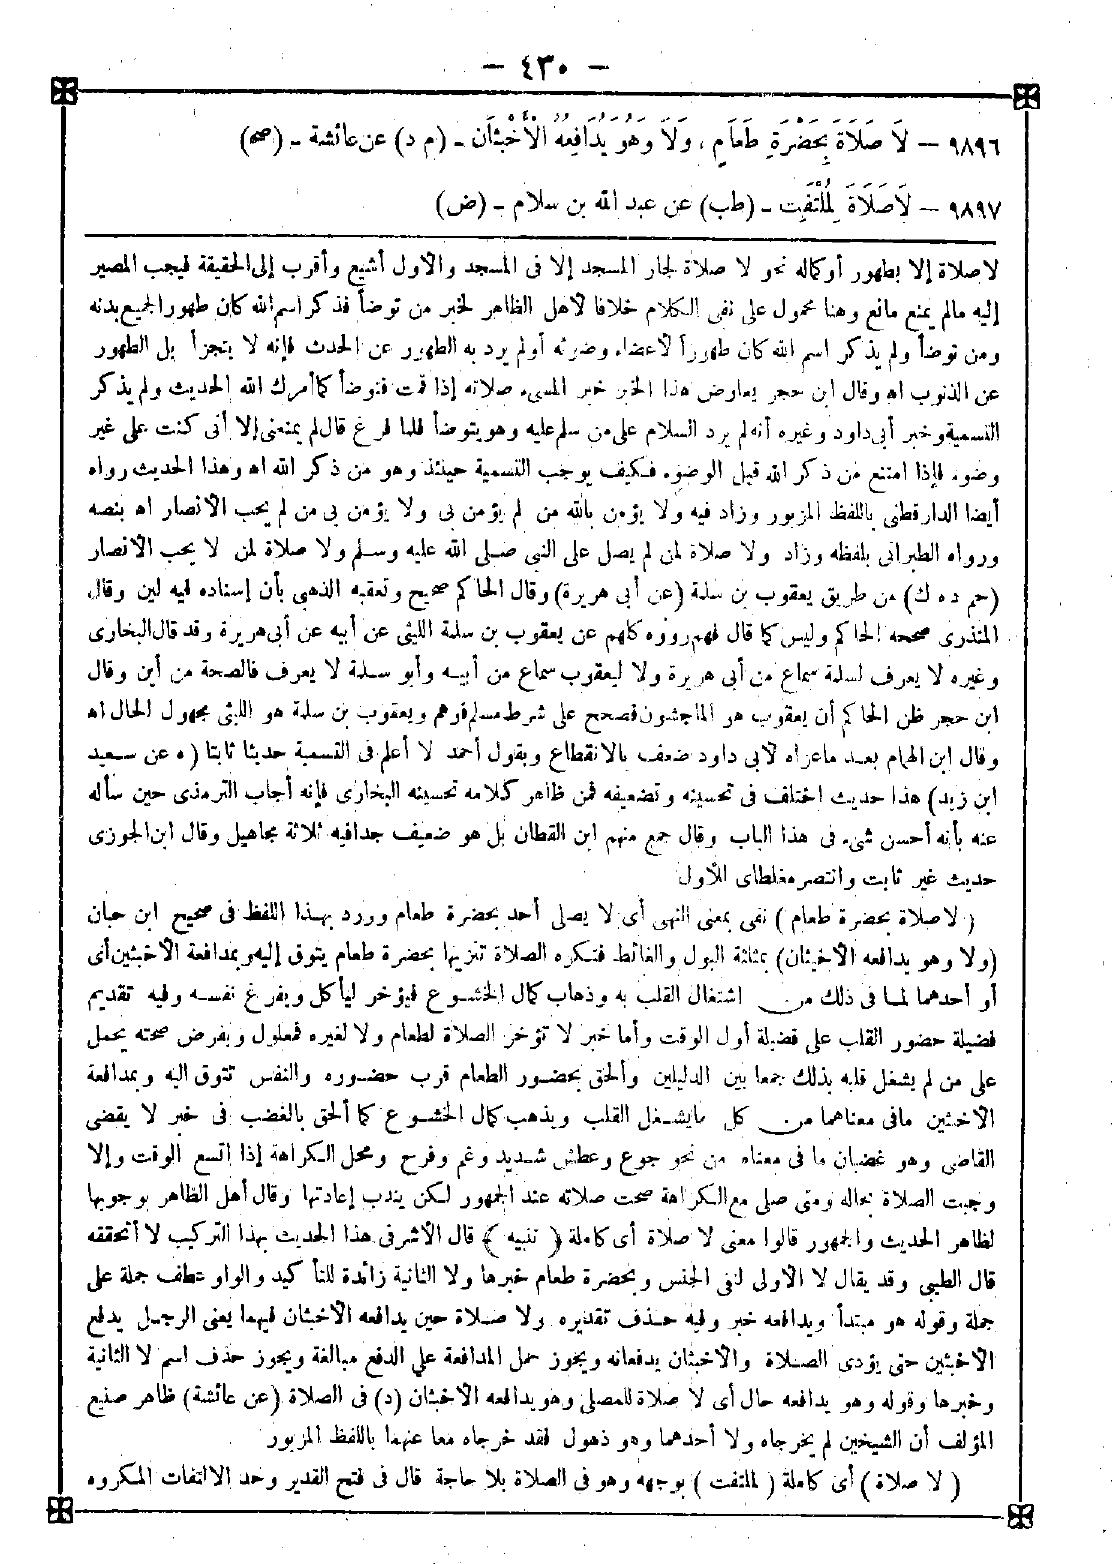 — ٤٣٠ —
٩٨٩٦ — لَا صَلَاةَ بِحَضْرَةِ طَعَامٍ ، وَلَا وَهُوَ يُدَافِعُهُ الْأَخْبَثَانِ ـ (م د) عن عائشة ـ (صح)
٩٨٩٧ — لَا صَلَاةَ لِمُلْتَفِتٍ ـ (طب) عن عبد الله بن سلام ـ (ض)
لا صلاة إلا بطهور أو كماله نحو لا صلاة لجار المسجد إلا فى المسجد والأول أشيع وأقرب إلى الحقيقة فيجب المصير
إليه مالم يمنع مانع وهنا محمول على نفى الكلام خلافا لأهل الظاهر لخبر من توضأ فذكر اسم الله كان طهورا لجميع بدنه
ومن توضأ ولم يذكر اسم الله كان طهوراً لأعضاء وضوئه أو لم يرد به الطهور عن الحدث فإنه لا يتجزأ بل الطهور
عن الذنوب اه وقال ابن حجر يعارض هذا الخبر خبر المسىء صلاته إذا قمت فتوضأ كما أمرك الله الحديث ولم يذكر
التسمية وخبر أبى داود وغيره أنه لم يرد السلام على من سلم عليه وهو يتوضأ فلما فرغ قال لم يمنعنى إلا أنى كنت على غير
وضوء فإذا امتنع من ذكر الله قبل الوضوء فكيف يوجب التسمية حينئذ وهو من ذكر الله اه وهذا الحديث رواه
أيضا الدارقطنى باللفظ المزبور وزاد فيه ولا يؤمن بالله من لم يؤمن بى ولا يؤمن بى من لم يحب الأنصار اه بنصه
ورواه الطبرانى بلفظه وزاد ولا صلاة لمن لم يصل على النبى صلى الله عليه وسلم ولا صلاة لمن لا يحب الأنصار
(حم د ه ك) من طريق يعقوب بن سلمة (عن أبى هريرة) وقال الحاكم صحيح وتعقبه الذهبى بأن إسناده فيه لين وقال
المنذرى صححه الحاكم وليس كما قال فهم رووه كلهم عن يعقوب بن سلمة الليثى عن أبيه عن أبى هريرة وقد قال البخارى
وغيره لا يعرف لسلمة سماع من أبى هريرة ولا ليعقوب سماع من أبيه وأبو سلمة لا يعرف فالصحة من أين وقال
ابن حجر ظن الحاكم أن يعقوب هو الماجشون فصحح على شرط مسلم فوهم ويعقوب بن سلمة هو الليثى مجهول الحال اه
وقال ابن الهمام بعد ماعزاه لأبى داود ضعف بالانقطاع وبقول أحمد لا أعلم فى التسمية حديثا ثابتا (ه عن سعيد
ابن زيد) هذا حديث اختلف فى تحسينه وتضعيفه فمن ظاهر كلامه تحسينه البخارى فإنه أجاب الترمذى حين سأله
عنه بأنه أحسن شىء فى هذا الباب وقال جمع منهم ابن القطان بل هو ضعيف جدا فيه ثلاثة مجاهيل وقال ابن الجوزى
حديث غير ثابت وانتصر مغلطاى للأول
( لا صلاة بحضرة طعام ) نفى بمعنى النهى أى لا يصلى أحد بحضرة طعام وورد بهذا اللفظ فى صحيح ابن حبان
(ولا وهو يدافعه الأخبثان) بمثلثة البول والغائط فتكره الصلاة تنزيها بحضرة طعام يتوق إليه وبمدافعة الأخبثين أى
أو أحدهما لما فى ذلك من اشتغال القلب به وذهاب كمال الخشوع فيؤخر ليأكل ويفرغ نفسه وفيه تقديم
فضيلة حضور القلب على فضيلة أول الوقت وأما خبر لا تؤخر الصلاة لطعام ولا لغيره فمعلول وبفرض صحته يحمل
على من لم يشغل قلبه بذلك جمعا بين الدليلين وألحق بحضور الطعام قرب حضوره والنفس تتوق اليه وبمدافعة
الأخبثين مافى معناهما من كل مايشغل القلب ويذهب كمال الخشوع كما ألحق بالغضب فى خبر لا يقضى
القاضى وهو غضبان ما فى معناه من نحو جوع وعطش شديد وغم وفرح ومحل الكراهة إذا اتسع الوقت وإلا
وجبت الصلاة بحاله ومتى صلى مع الكراهة صحت صلاته عند الجمهور لكن يندب إعادتها وقال أهل الظاهر بوجوبها
لظاهر الحديث والجمهور قالوا معنى لا صلاة أى كاملة ﴿ تنبيه ﴾ قال الأشرفى هذا الحديث بهذا التركيب لا أتحققه
قال الطيبى وقد يقال لا الأولى لنفى الجنس وبحضرة طعام خبرها ولا الثانية زائدة للتأكيد والواو عطف جملة على
جملة وقوله هو مبتدأ ويدافعه خبر وفيه حذف تقديره ولا صلاة حين يدافعه الأخبثان فيهما يعنى الرجل يدفع
الأخبثين حتى يؤدى الصلاة والأخبثان يدفعانه ويجوز حمل المدافعة على الدفع مبالغة ويجوز حذف اسم لا الثانية
وخبرها وقوله وهو يدافعه حال أى لا صلاة للمصلى وهو يدافعه الأخبثان (د) فى الصلاة (عن عائشة) ظاهر صنيع
المؤلف أن الشيخين لم يخرجاه ولا أحدهما وهو ذهول فقد خرجاه معا عنهما باللفظ المزبور
( لا صلاة ) أى كاملة ( لملتفت ) بوجهه وهو فى الصلاة بلا حاجة قال فى فتح القدير وحد الالتفات المكروه